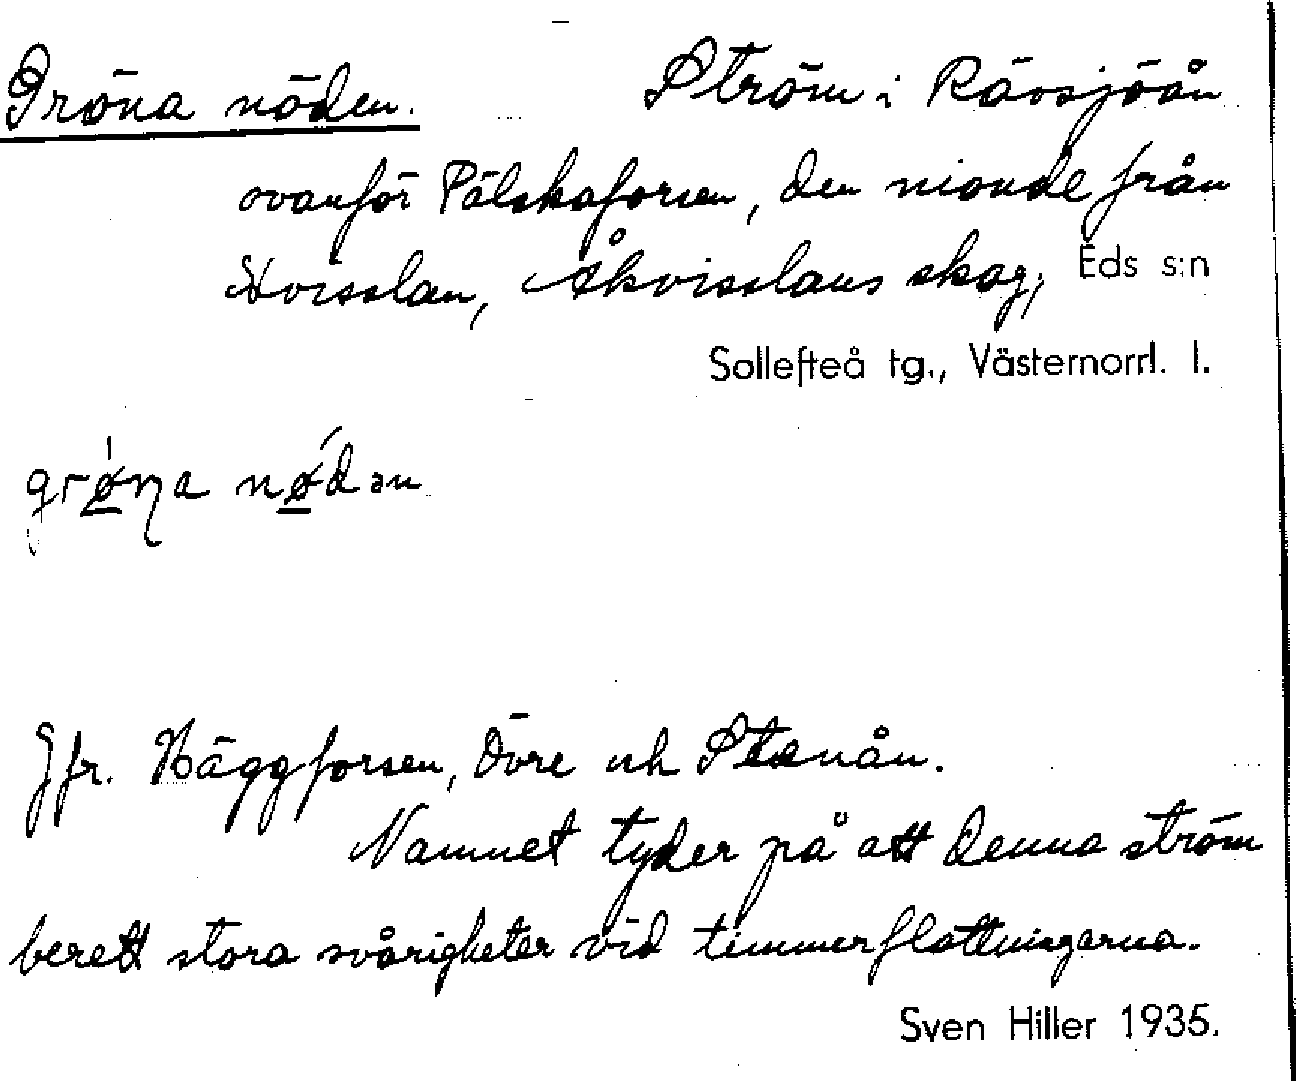 Gröna nöden. Ström i Rävsjöån
ovanför Pälskaforsen, den nionde från
Kvisslan, Åkvisslans skog, Eds s:n
Sollefteå tg., Västernorrl. l.
grø̲ŋa nǿ̲dən
Jfr. Häggforsen, Övre och Stenån.
Namnet tyder på att denna ström
berett stora svårigheter vid timmerflottningarna.
Sven Hiller 1935.